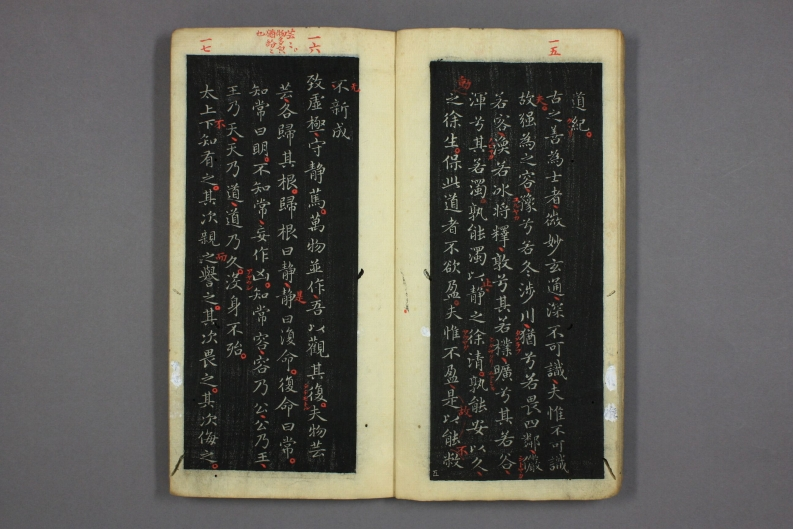 一五
道紀
古之善為士者微妙玄通深不可識夫惟不可識
故强為之容豫兮若冬涉川猶兮若畏四鄰儼
若容渙若冰將釋敦兮其若樸曠兮其若谷
渾兮其若濁孰能濁以静之徐清孰能安以久
之徐生保此道者不欲盈夫惟不盈是以能敝
五
一六
不新成
致虛極守静篤萬物並作吾以觀其復夫物芸
芸各歸其根歸根曰静静曰復命復命曰常
知常曰明不知常妄作凶知常容容乃公公乃王
王乃天天乃道道乃久沒身不殆
一七
太上下知有之其次親之譽之其次畏之其次侮之